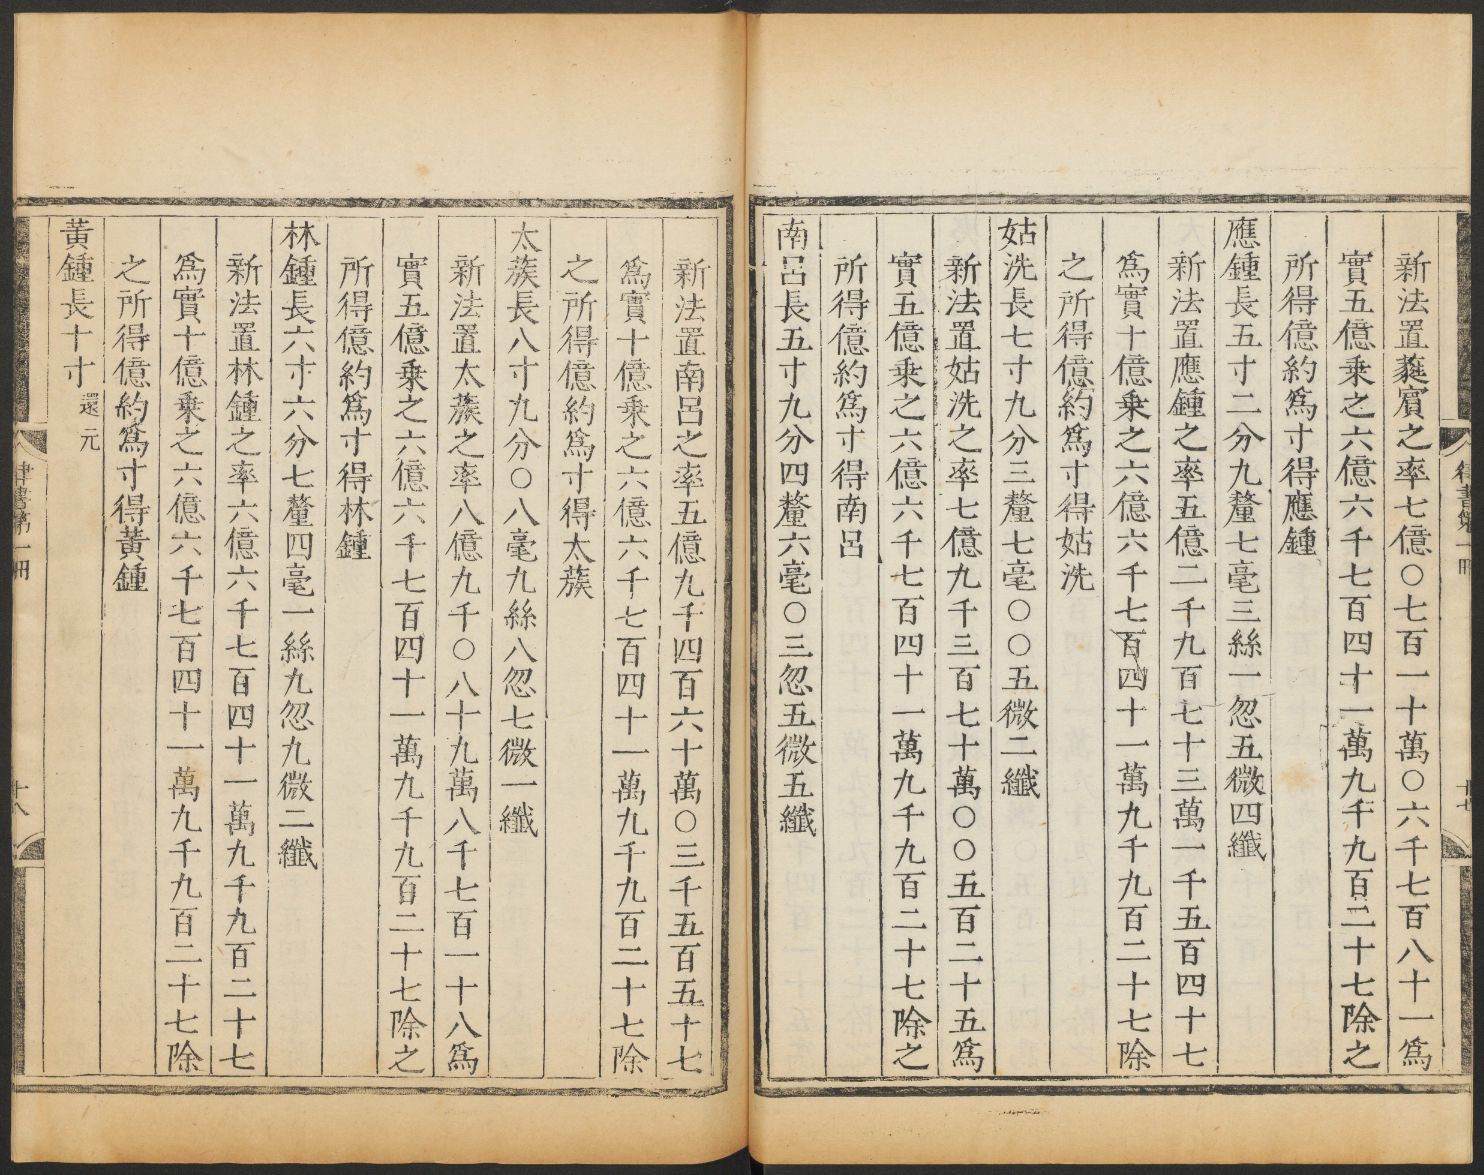 新法置蕤賓之率七億〇七百一十萬〇六千七百八十一爲
實五億乘之六億六千七百四十一萬九千九百二十七除之
所得億約爲寸得應鍾
應鍾長五寸二分九釐七毫三絲一忽五微四纖
新法置應鍾之率五億二千九百七十三萬一千五百四十七
爲實十億乘之六億六千七百四十一萬九千九百二十七除
之所得億約爲寸得姑洗
姑洗長七寸九分三釐七毫〇〇五微二纖
新法置姑洗之率七億九千三百七十萬〇〇五百二十五爲
實五億乘之六億六千七百四十一萬九千九百二十七除之
所得億約爲寸得南呂
南呂長五寸九分四釐六毫〇三忽五微五纖
律書第一冊
十七
新法置南呂之率五億九千四百六十萬〇三千五百五十七
爲實十億乘之六億六千七百四十一萬九千九百二十七除
之所得億約爲寸得太蔟
太蔟長八寸九分〇八毫九絲八忽七微一纖
新法置太蔟之率八億九千〇八十九萬八千七百一十八爲
實五億乘之六億六千七百四十一萬九千九百二十七除之
所得億約爲寸得林鍾
林鍾長六寸六分七釐四毫一絲九忽九微二纖
新法置林鍾之率六億六千七百四十一萬九千九百二十七
爲實十億乘之六億六千七百四十一萬九千九百二十七除
之所得億約爲寸得黃鍾
黃鍾長十寸還元
律書第一冊
十八